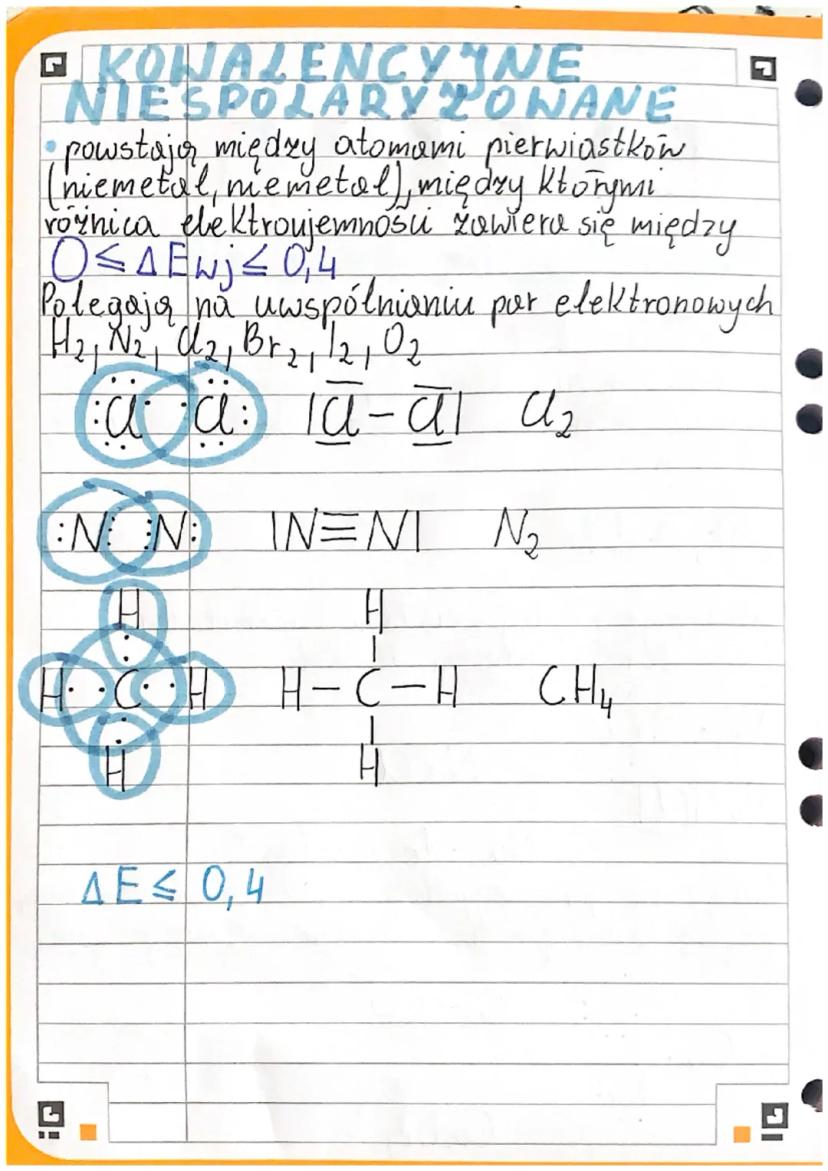 KOWALENCYJNE
NIESPOLARYZOWANE
• powstają między atomami pierwiastków
(niemetal, niemetal), między którymi
różnica elektroujemności zawiera się między
0 ≤ ΔEwj ≤ 0,4
Polegają na uwspólnianiu par elektronowych
H₂, N₂, Cl₂, Br₂, I₂, O₂
:Cl· ·Cl: |Cl–Cl| Cl₂
:N⋮ ⋮N: |N≡N| N₂
H H
H··C··H H–C–H CH₄
H H
ΔE ≤ 0,4